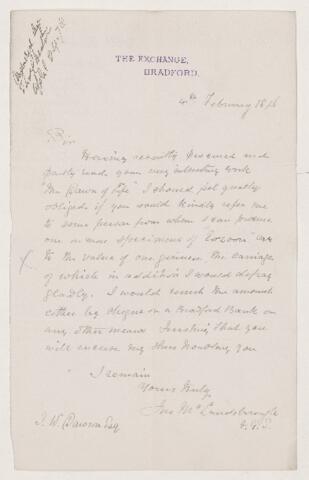 THE EXCHANGE,
BRADFORD.
4th February 1876
Sir
Having recently procured and
partly read your very interesting work
"The Dawn of Life" I should feel greatly
obliged if you would kindly refer me
to some person from whom I can procure
one or more specimens of "Eozoon"
to the value of one guinea the carriage
of which in addition I would defray
gladly. I would remit the amount
either by cheque on a Bradford Bank or
any other means Trusting that you
will excuse my thus troubling you
I remain
Yours truly
Jno McLandsborough
F.G.S.
J. W. Dawson Esq